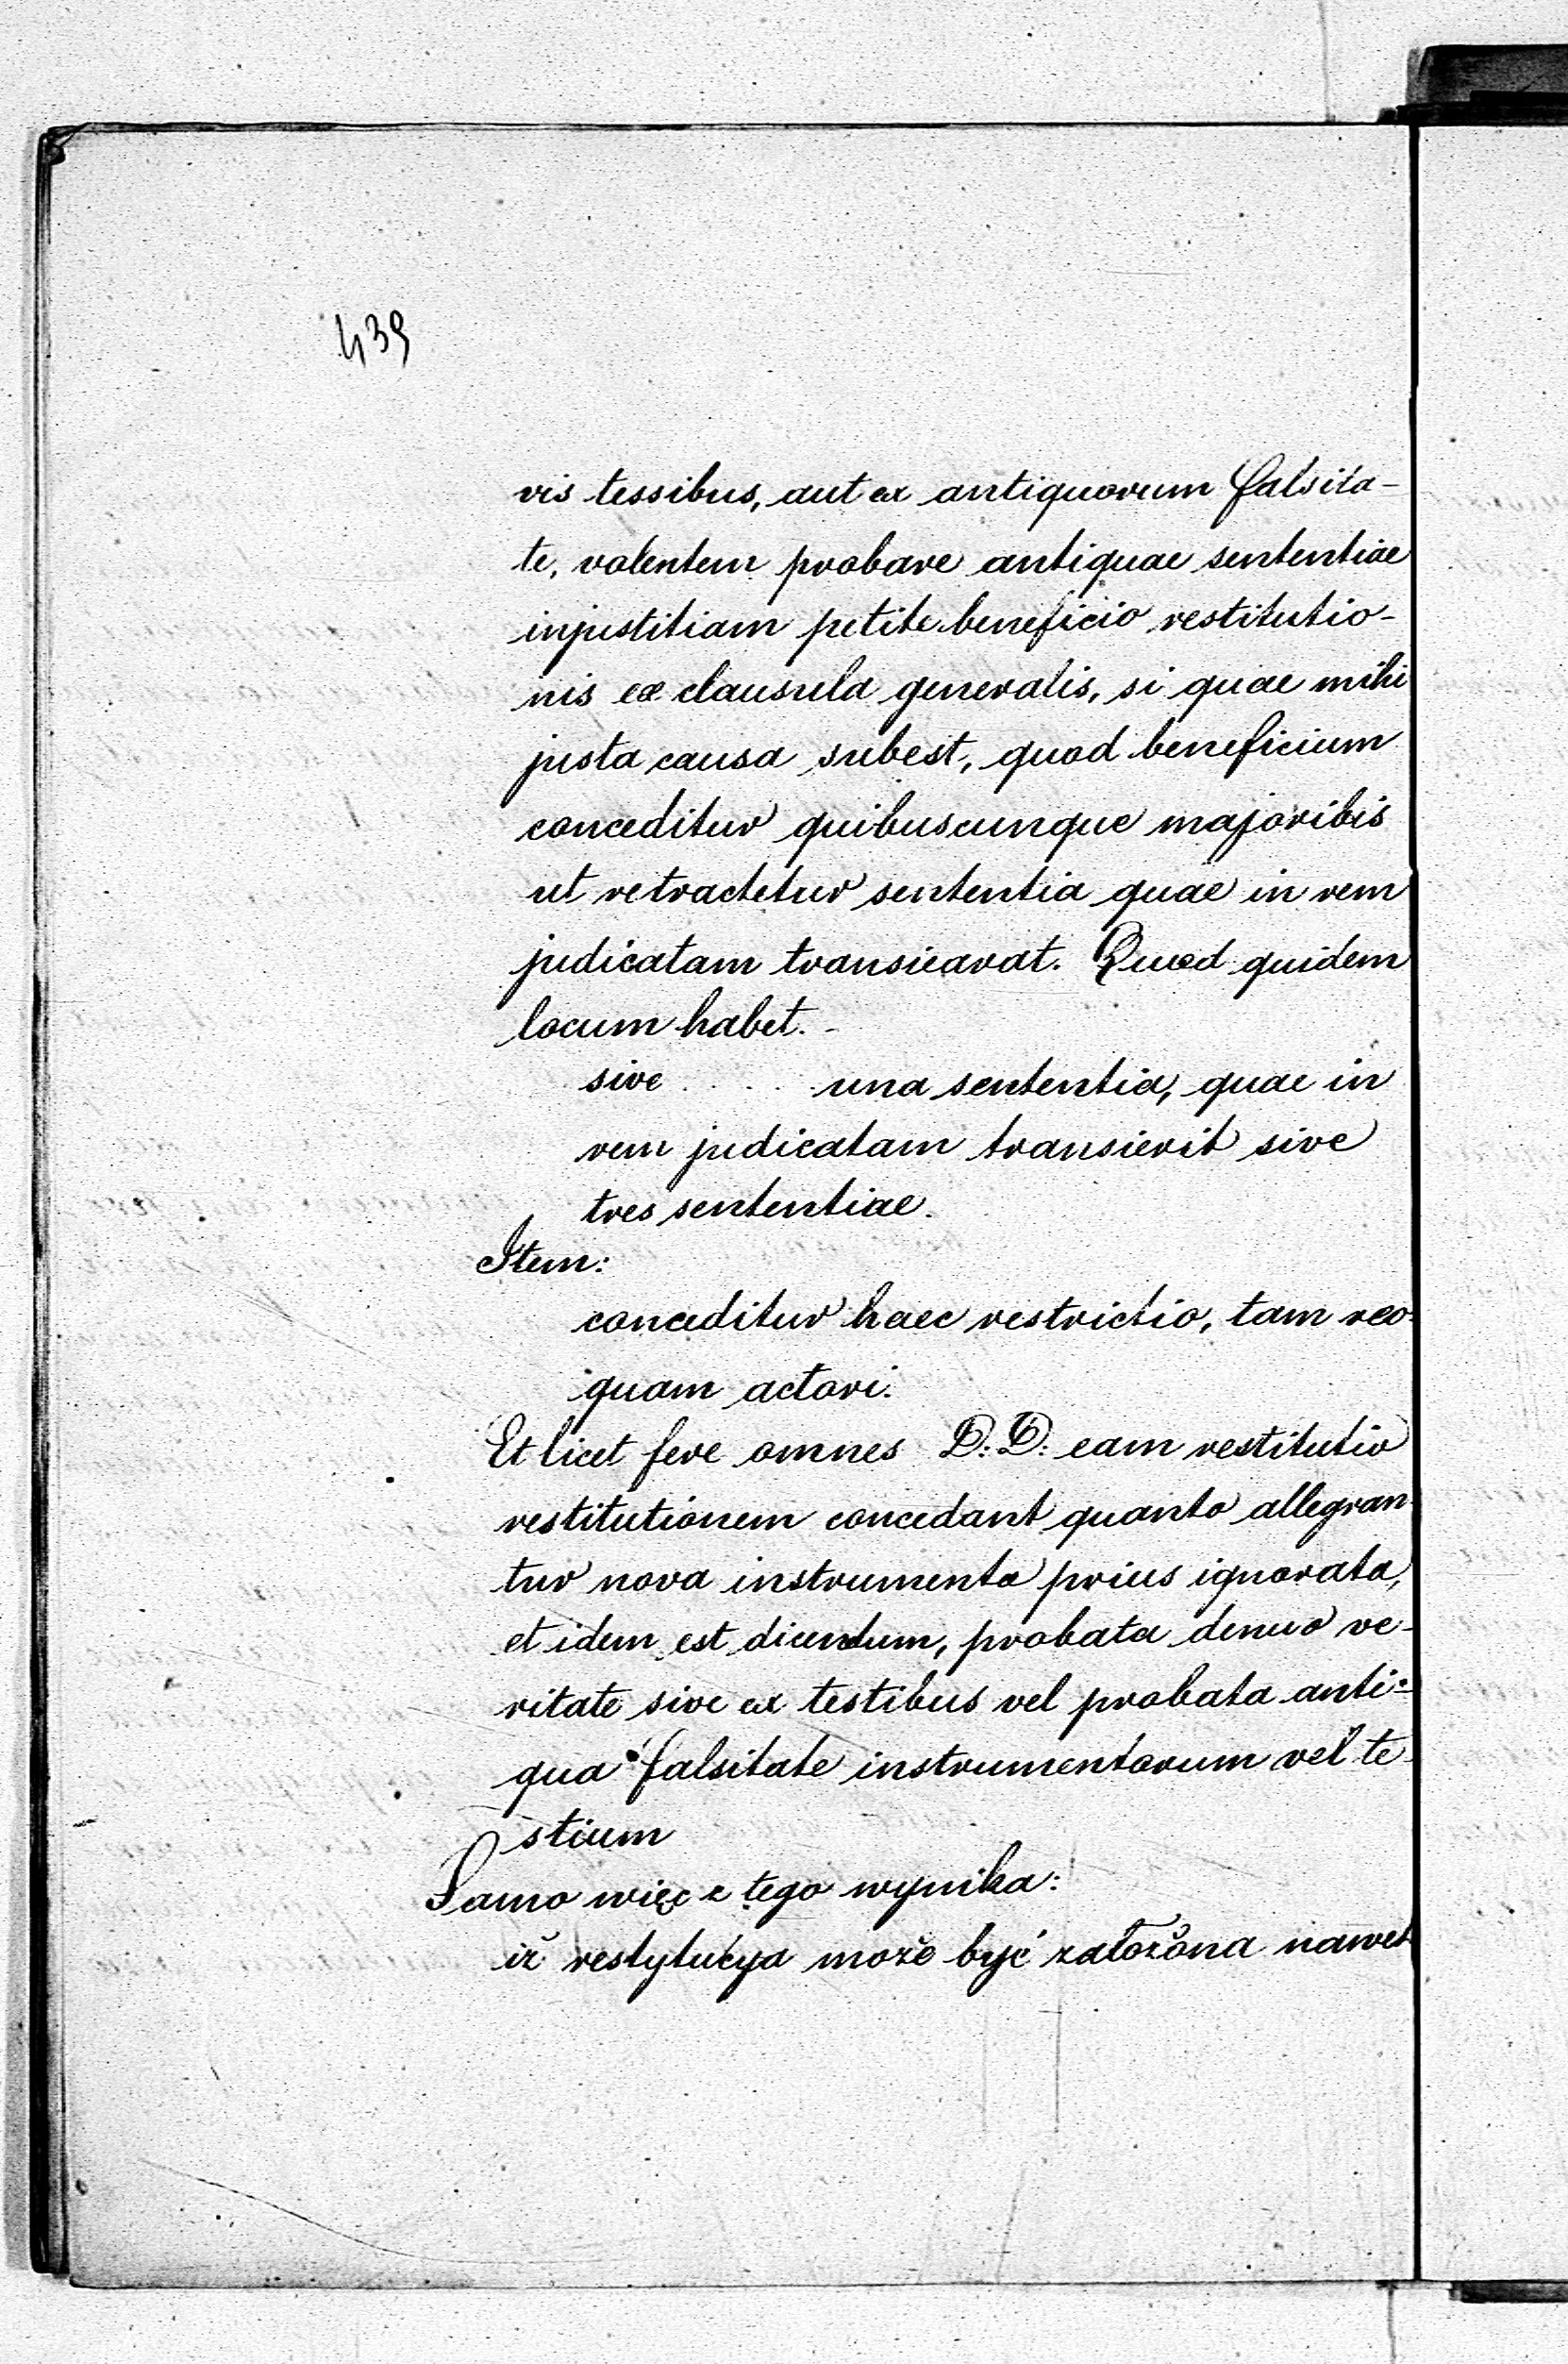 439
vis tessibus, aut ex antiquorum falsita-
te, volentem probare antiquae sententiae
injustitiam petite beneficio restitutio-
nis ex clausula generalis, si quae mihi
justa causa subest, quod beneficium
conceditur quibuscunque majoribis
ut retractetur sententia quae in rem
judicatam transicarat. Quod quidem
locum habet. -
sive . . . . una sententia, quae in
rem judicatam transierit sive
tres sententiae.
Item:
conceditur haec restrictio, tam reo
quam actori.
Et licet fere omnes D: D: eam restitutio
restitutionem concedant quanto allegran-
tur nova instrumenta prius ignorata,
et idem est dicendum, probata denuo ve-
ritate sive ex testibus vel probata anti-
qua falsitate instrumentorum vel te-
stium
Samo więc z tego wynika:
iż restytucya może być założona nawet